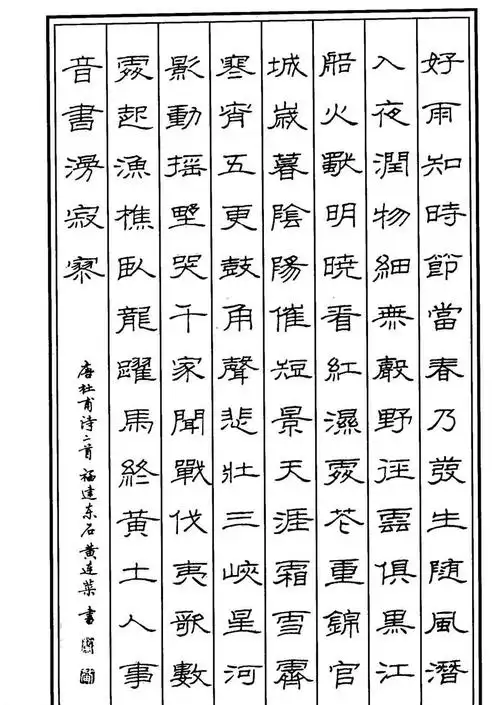 好雨知時節當春乃發生随風潛
入夜潤物細無聲野徑雲俱黑江
船火獨明曉看紅濕處花重錦官
城歲暮陰陽催短景天涯霜雪霽
寒宵五更鼓角聲悲壯三峽星河
影動摇野哭千家聞戰伐夷歌數
處起漁樵臥龍躍馬終黃土人事
音書漫寂寥
唐杜甫诗二首福建东石黄连葉書